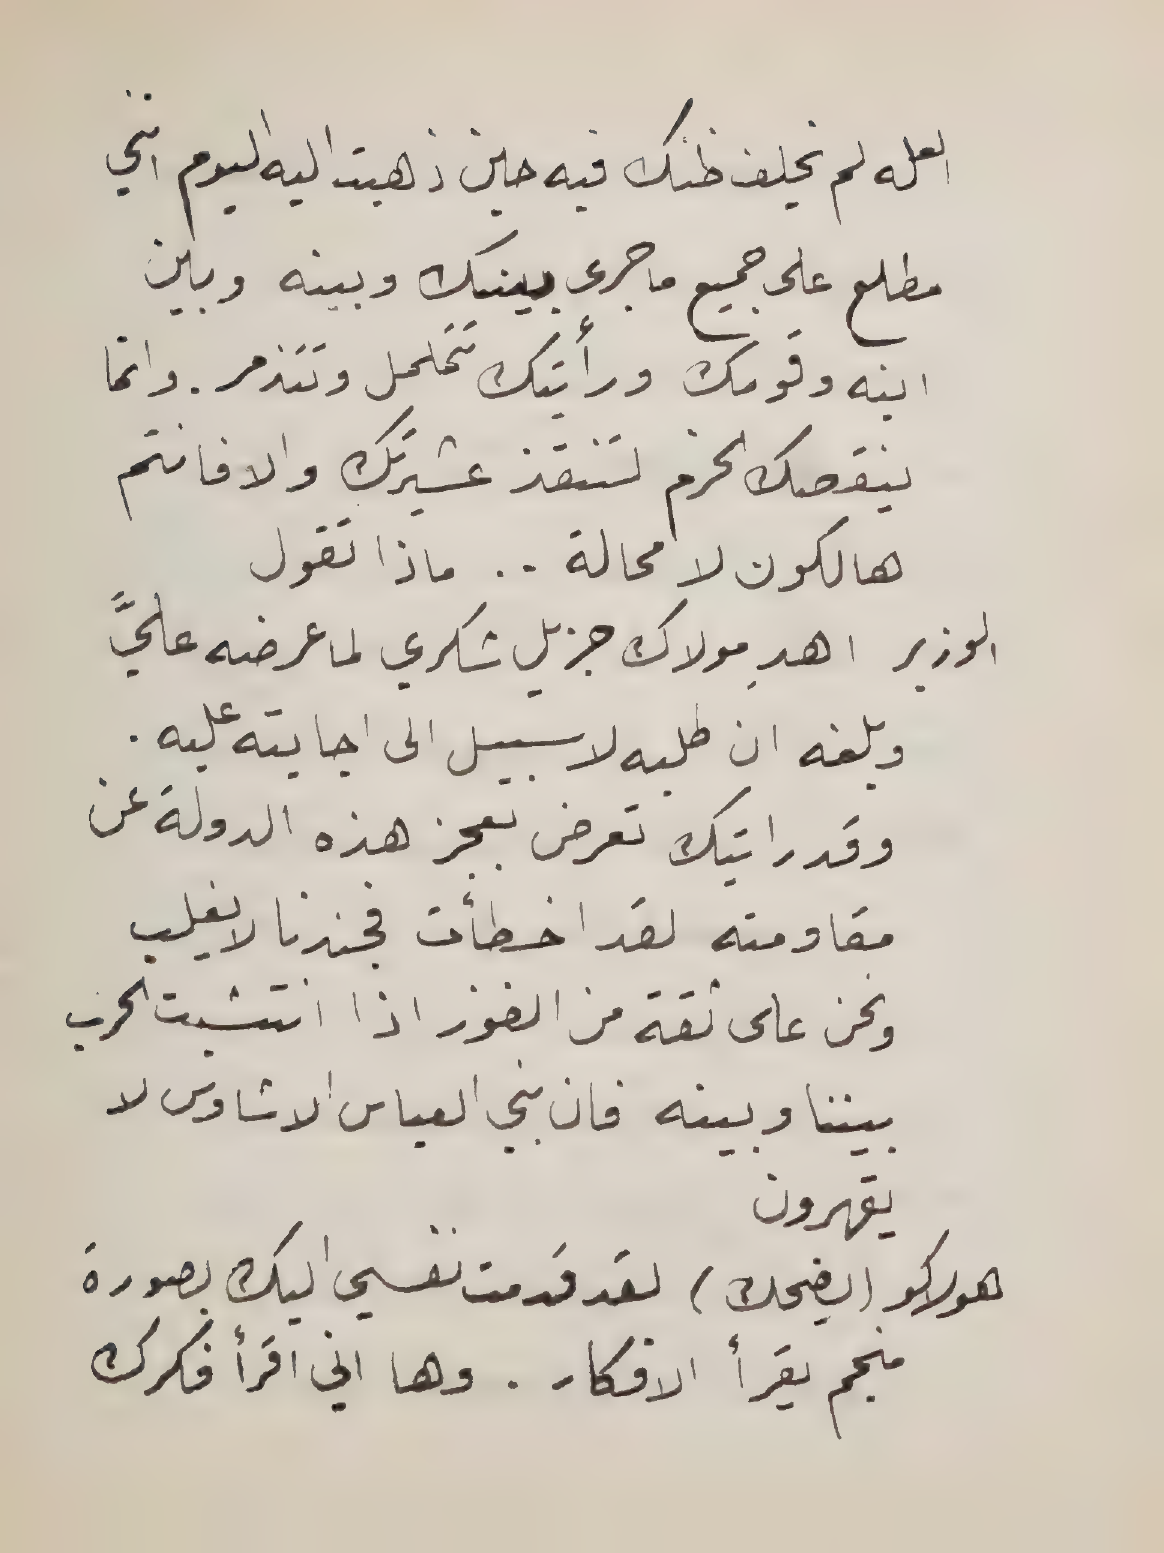 العله لم يخلف ظنك فيه حين ذهبت اليه اليوم انني
مطلع على جميع ما جرى بينك وبينه وبين
ابنه وقومك ورأيتك تتململ وتتذمر . وانما
ينقصك الحزم لتنقذ عشيرتك والا فانتم
هالكون لا محالة . . ماذا تقول
الوزير اهدِ مولاك جزيل شكري لما عرضه عليَّ
وبلغه ان طلبه لا سبيل الى اجابته عليه .
وقد رايتك تعرض بعجز هذه الدولة عن
مقاومته لقد اخطأت فجندنا لا يغلب
ونحن على ثقة من الفوز اذا انتشبت الحرب
بيننا وبينه فان بني العباس الاشاوس لا
يقهرون
هولاكو (يضحك) لقد قدمت نفسي اليك بصورة
منجم يقرأ الافكار . وها اني اقرأ فكرك